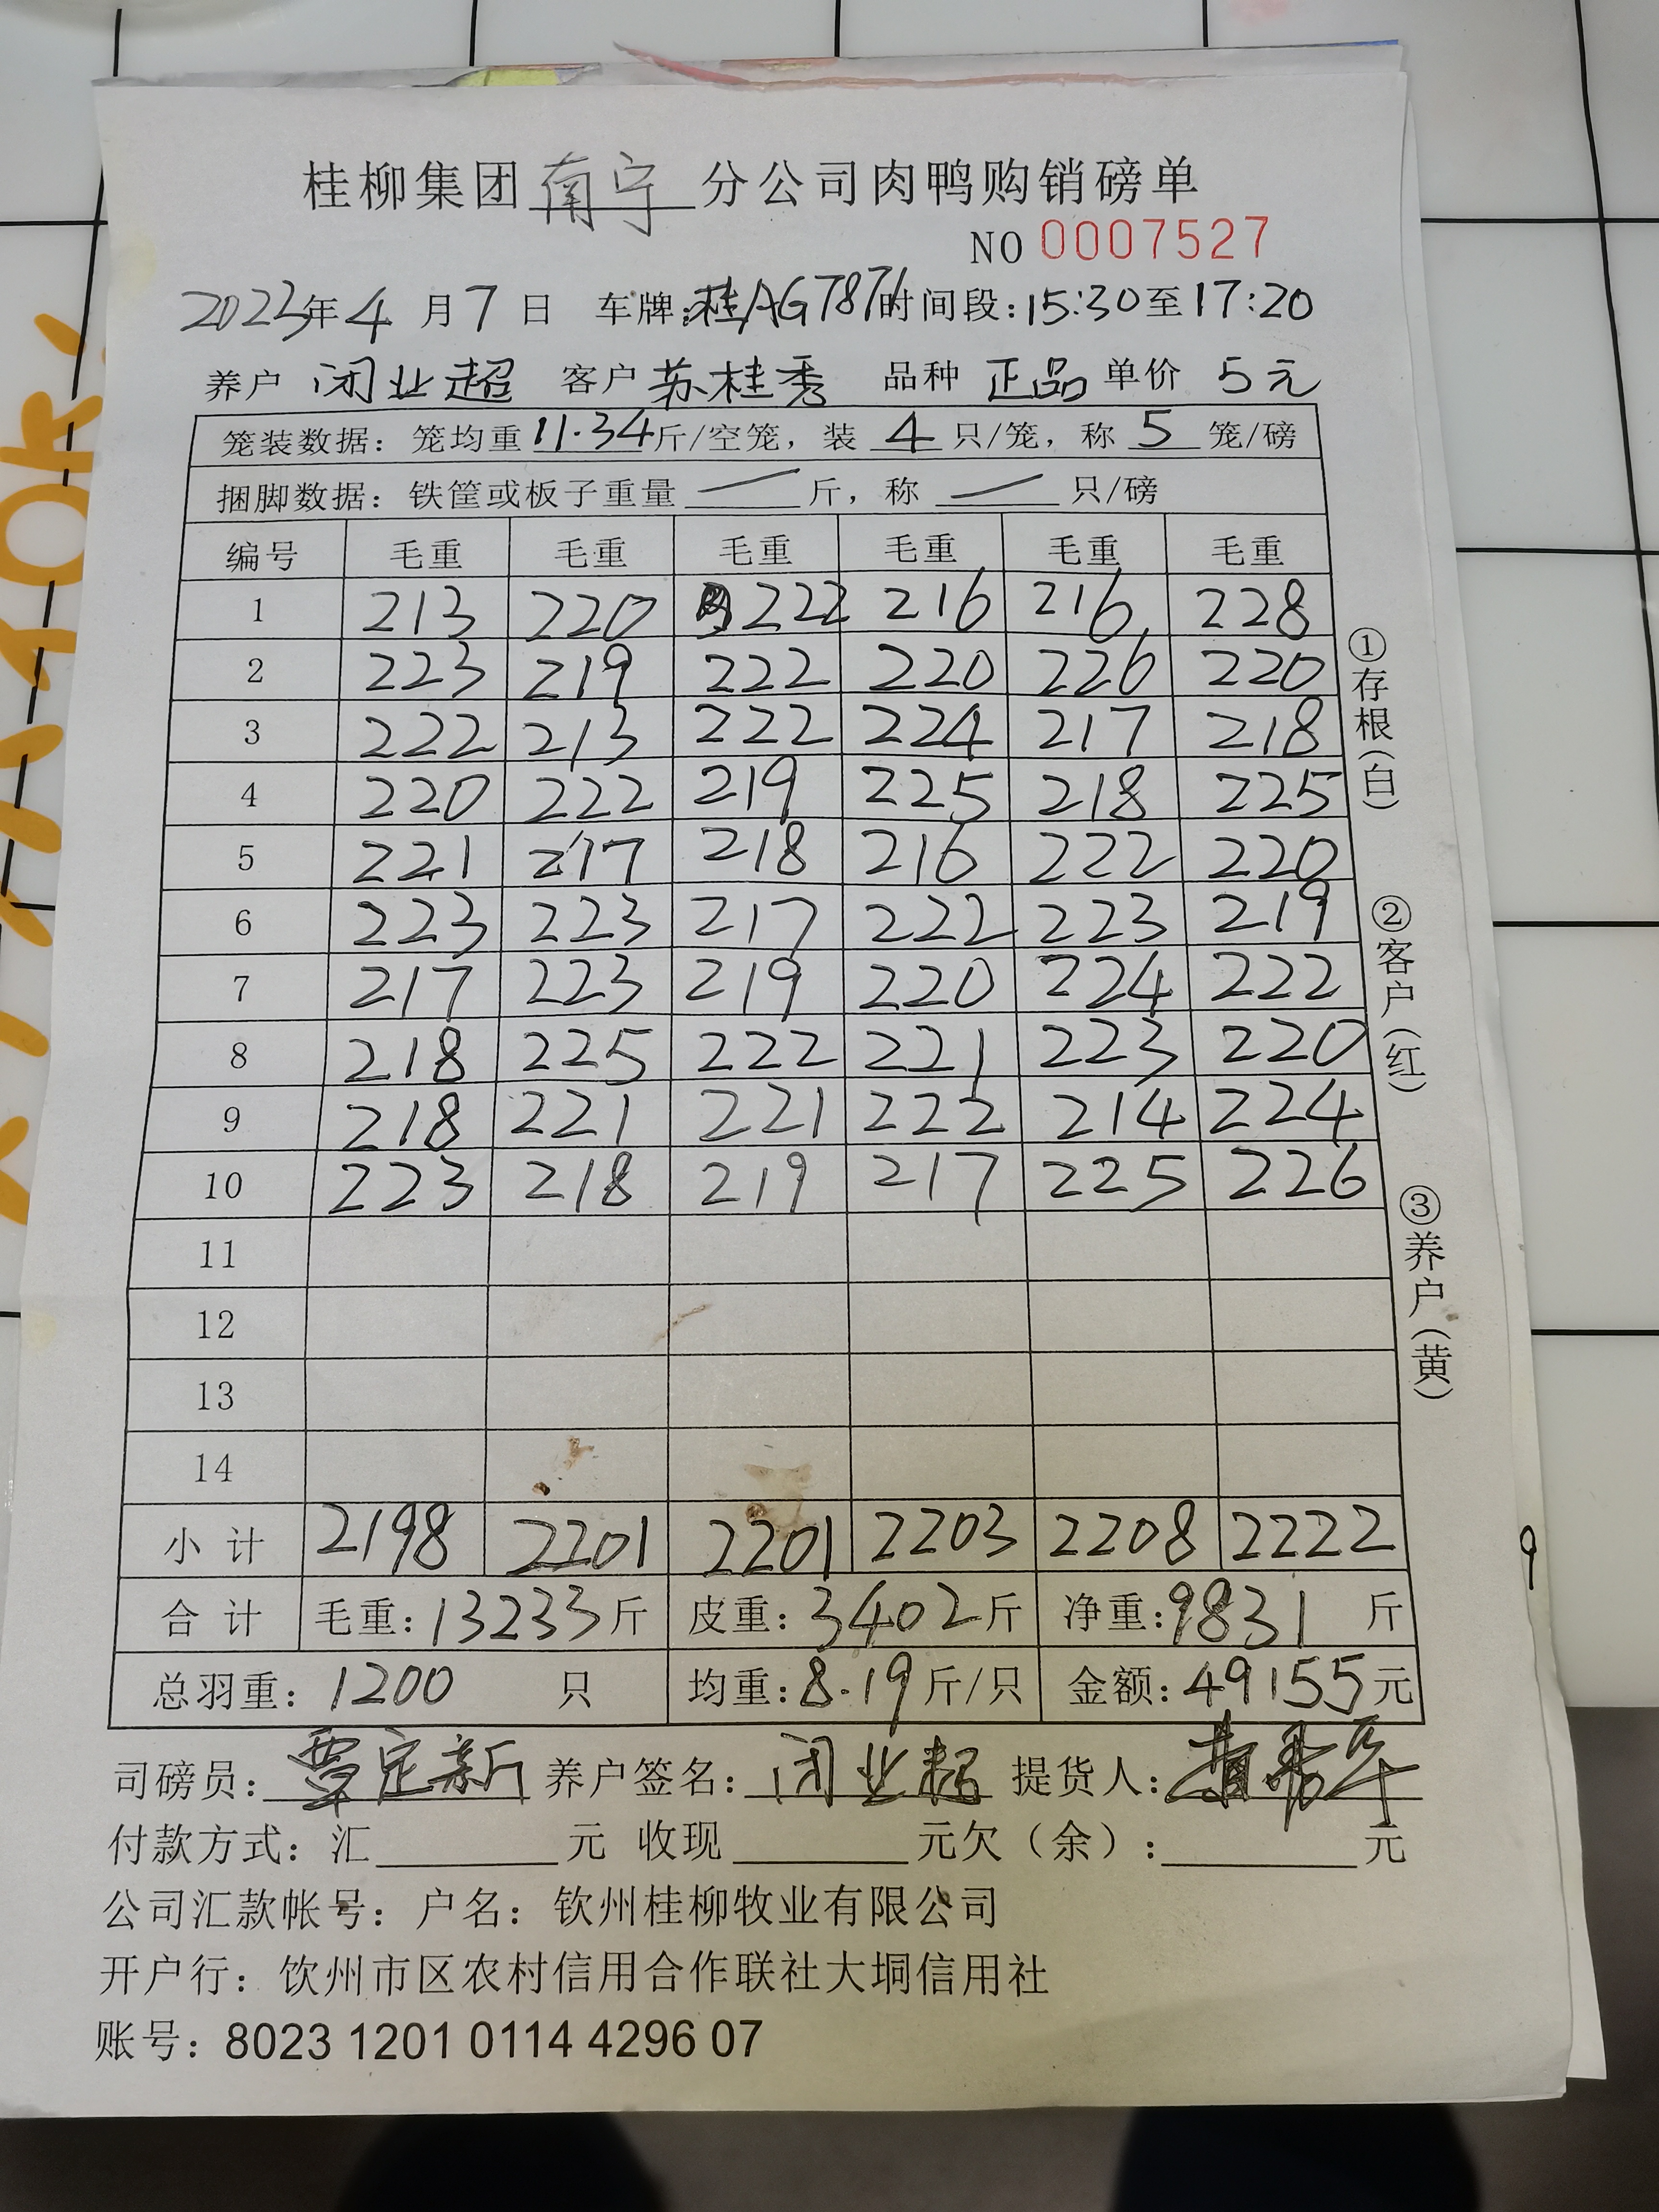 桂柳集团南宁分公司肉鸭购销磅单
NO 0007527
2023年4月7日 车牌:桂AG7871 时间段:15:30至17:20
养户 闭业超 客户 苏桂秀 品种 正品 单价 5元
笼装数据: 笼均重 11.34 斤/空笼, 装 4 只/笼, 称 5 笼/磅
捆脚数据: 铁筐或板子重量 — 斤, 称 — 只/磅
编号 毛重 毛重 毛重 毛重 毛重 毛重
1 213 220 222 216 216 228
2 223 219 222 220 226 220
3 222 213 222 224 217 218
4 220 222 219 225 218 225
5 221 217 218 216 222 220
6 223 223 217 222 223 219
7 217 223 219 220 224 222
8 218 225 222 221 223 220
9 218 221 221 222 214 224
10 223 218 219 217 225 226
11
12
13
14
小计 2198 2201 2201 2203 2208 2222
合计 毛重: 13233斤 皮重: 3402斤 净重: 9831 斤
总羽重: 1200 只 均重: 8.19斤/只 金额: 49155元
司磅员: 覃定新 养户签名: 闭业超 提货人:
付款方式: 汇 元 收现 元欠(余): 元
公司汇款帐号: 户名: 钦州桂柳牧业有限公司
开户行: 饮州市区农村信用合作联社大垌信用社
账号: 8023 1201 0114 4296 07
①存根(白)
②客户(红)
③养户(黄)